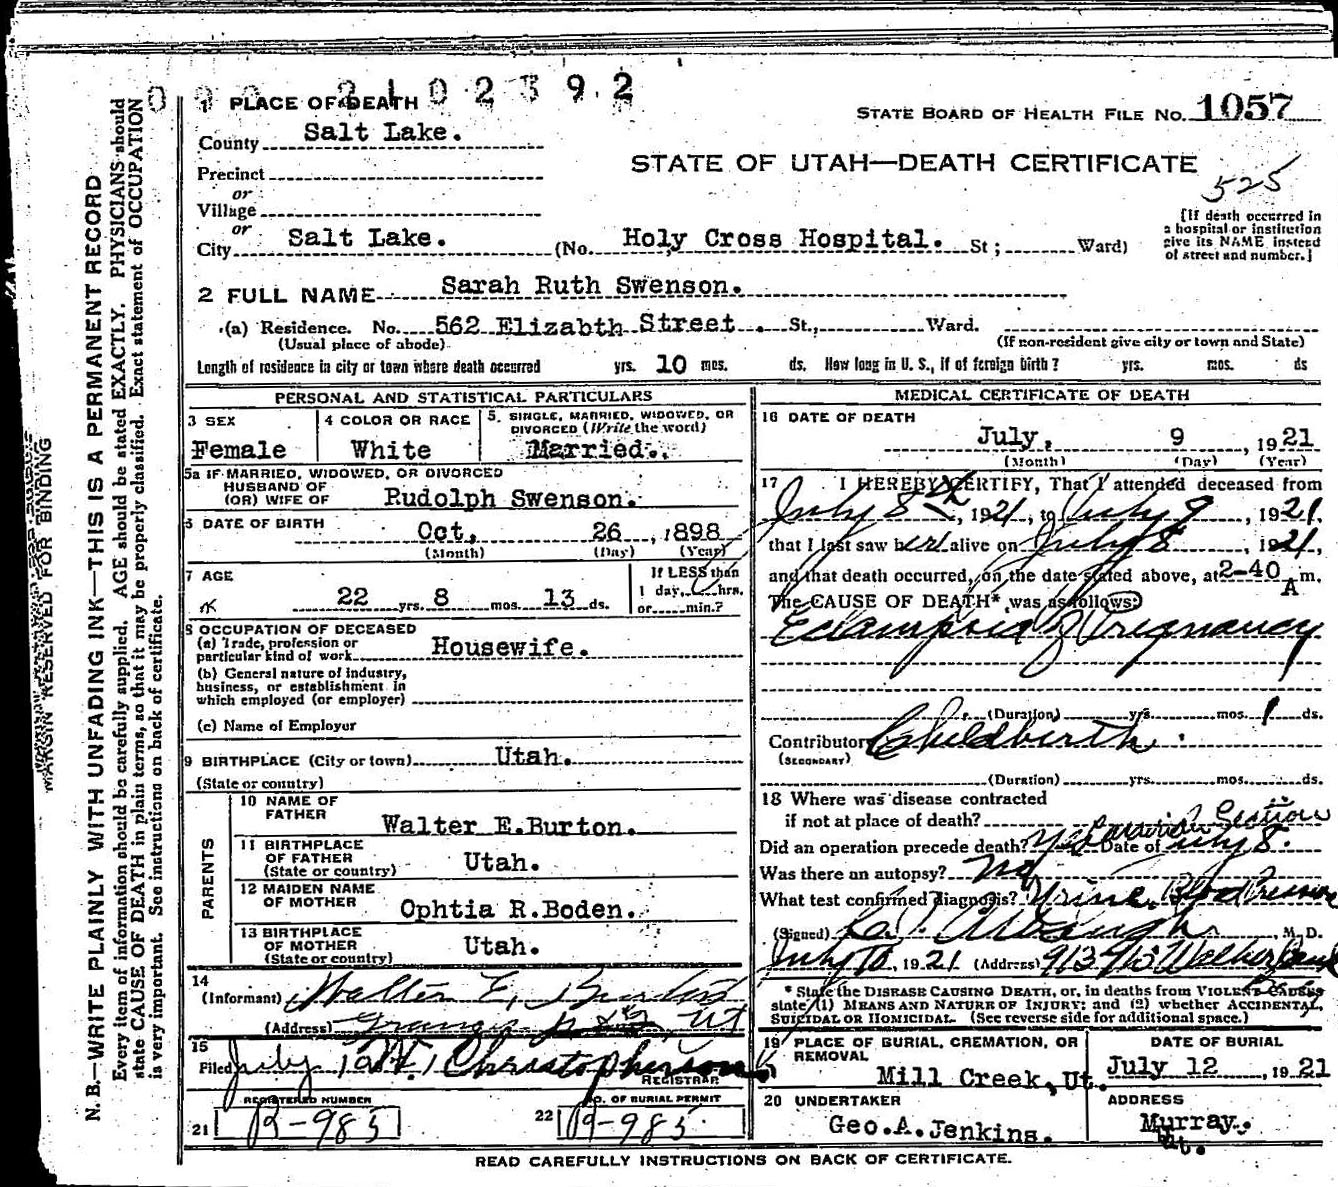 2102392
1 PLACE OF DEATH
STATE BOARD OF HEALTH FILE No. 1057
County Salt Lake.
STATE OF UTAH—DEATH CERTIFICATE
Precinct
525
or
Village
or
City Salt Lake. (No. Holy Cross Hospital. St; Ward)
[If death occurred in
a hospital or institution
give its NAME instead
of street and number.]
2 FULL NAME Sarah Ruth Swenson.
(a) Residence. No. 562 Elizabth Street . St., Ward.
(Usual place of abode) (If non-resident give city or town and State)
Length of residence in city or town where death occurred yrs. 10 mos. ds. How long in U. S., if of foreign birth? yrs. mos. ds
PERSONAL AND STATISTICAL PARTICULARS
3 SEX
Female
4 COLOR OR RACE
White
5. SINGLE, MARRIED, WIDOWED, OR
DIVORCED (Write the word)
Married.
5a IF MARRIED, WIDOWED, OR DIVORCED
HUSBAND OF
(OR) WIFE OF Rudolph Swenson.
6 DATE OF BIRTH Oct, 26 , 1898
(Month) (Day) (Year)
7 AGE
22 yrs. 8 mos. 13 ds.
If LESS than
1 day, hrs.
or min.?
8 OCCUPATION OF DECEASED
(a) Trade, profession or
particular kind of work Housewife.
(b) General nature of industry,
business, or establishment in
which employed (or employer)
(c) Name of Employer
9 BIRTHPLACE (City or town) Utah.
(State or country)
PARENTS
10 NAME OF
FATHER Walter E.Burton.
11 BIRTHPLACE
OF FATHER
(State or country) Utah.
12 MAIDEN NAME
OF MOTHER Ophtia R.Boden.
13 BIRTHPLACE
OF MOTHER
(State or country) Utah.
14
(Informant) Walter E. Burton
(Address) Granger Ut
15
Filed July Christopherson
REGISTRAR
REGISTERED NUMBER
21 R-985
NO. OF BURIAL PERMIT
22 R-985
MEDICAL CERTIFICATE OF DEATH
16 DATE OF DEATH
July, 9 , 1921
(Month) (Day) (Year)
17 I HEREBY CERTIFY, That I attended deceased from
July 8th, 1921, to July 9, 1921,
that I last saw her alive on July 8, 1921,
and that death occurred, on the date stated above, at 2-40 A m.
The CAUSE OF DEATH* was as follows:
Eclampsia of Pregnancy
(Duration) yrs. mos. 1 ds.
Contributory Childbirth.
(SECONDARY)
(Duration) yrs. mos. ds.
18 Where was disease contracted
if not at place of death?
Did an operation precede death? Yes Caesarian Section Date of July 8.
Was there an autopsy? No
What test confirmed diagnosis? Urine. Blood Pressure
(Signed) M. D.
July 10, 1921 (Address) 913-915 Walker Bank
* State the DISEASE CAUSING DEATH, or, in deaths from VIOLENT CAUSES
state (1) MEANS AND NATURE OF INJURY; and (2) whether ACCIDENTAL,
SUICIDAL OR HOMICIDAL. (See reverse side for additional space.)
19 PLACE OF BURIAL, CREMATION, OR
REMOVAL
Mill Creek, Ut.
DATE OF BURIAL
July 12 , 1921
20 UNDERTAKER
Geo.A.Jenkins.
ADDRESS
Murray.
Ut.
READ CAREFULLY INSTRUCTIONS ON BACK OF CERTIFICATE.
MARGIN RESERVED FOR BINDING
N. B.—WRITE PLAINLY WITH UNFADING INK—THIS IS A PERMANENT RECORD
Every item of information should be carefully supplied. AGE should be stated EXACTLY. PHYSICIANS should
state CAUSE OF DEATH in plain terms, so that it may be properly classified. Exact statement of OCCUPATION
is very important. See instructions on back of certificate.